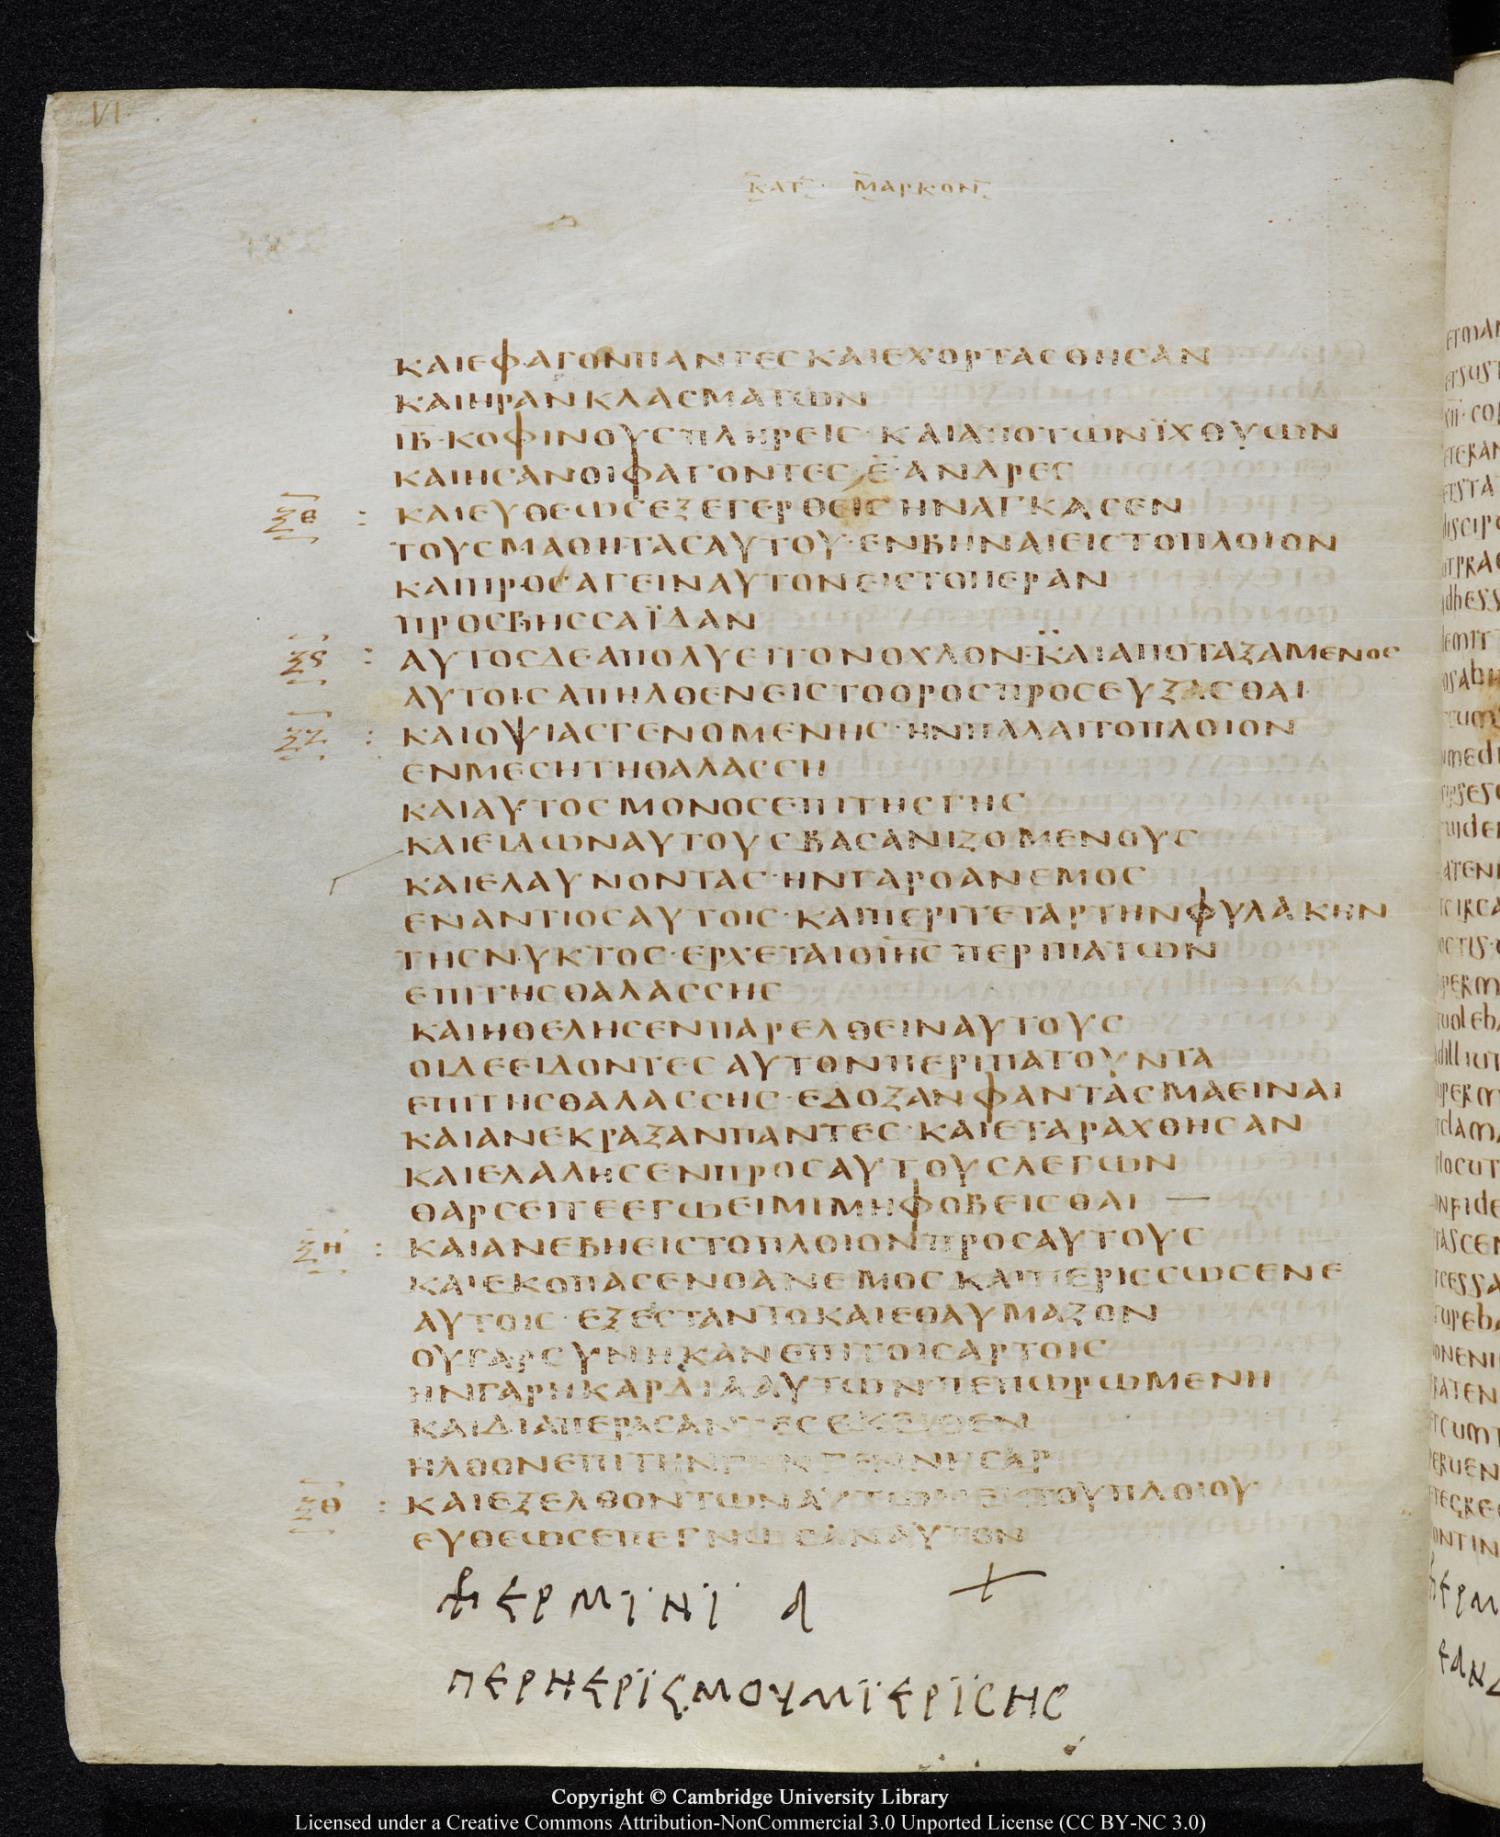 VI
ΚΑΤ· ΜΑΡΚΟΝ
ΚΑΙΕΦΑΓΟΝΠΑΝΤΕСΚΑΙΕΧΟΡΤΑСΘΗСΑΝ
ΚΑΙΗΡΑΝΚΛΑСΜΑΤΩΝ
ΙΒ̅·ΚΟΦΙΝΟΥСΠΛΗΡΕΙС·ΚΑΙΑΠΟΤΩΝΪΧΘΥΩΝ
ΚΑΙΗСΑΝΟΙΦΑΓΟΝΤΕС·Ε̅·ΑΝΔΡΕС
ΞΕ : ΚΑΙΕΥΘΕΩСΕΞΕΓΕΡΘΕΙСΗΝΑΓΚΑСΕΝ
ΤΟΥСΜΑΘΗΤΑСΑΥΤΟΥ·ΕΝΒΗΝΑΙΕΙСΤΟΠΛΟΙΟΝ
ΚΑΙΠΡΟСΑΓΕΙΝΑΥΤΟΝΕΙСΤΟΠΕΡΑΝ
ΠΡΟСΒΗССΑΪΔΑΝ
Ξϛ : ΑΥΤΟСΔΕΑΠΟΛΥΕΙΤΟΝΟΧΛΟΝ·ΚΑΙΑΠΟΤΑΞΑΜΕΝΟС
ΑΥΤΟΙСΑΠΗΛΘΕΝΕΙСΤΟΟΡΟСΠΡΟСΕΥΞΑСΘΑΙ
ΞΖ : ΚΑΙΟΨΙΑСΓΕΝΟΜΕΝΗС·ΗΝΠΑΛΑΙΤΟΠΛΟΙΟΝ
ΕΝΜΕСΗΤΗΘΑΛΑССΗ
ΚΑΙΑΥΤΟСΜΟΝΟСΕΠΙΤΗСΓΗС
ΚΑΙΕΙΔΩΝΑΥΤΟΥСΒΑСΑΝΙΖΟΜΕΝΟΥС
ΚΑΙΕΛΑΥΝΟΝΤΑС·ΗΝΓΑΡΟΑΝΕΜΟС
ΕΝΑΝΤΙΟСΑΥΤΟΙС·ΚΑΙΠΕΡΙΤΕΤΑΡΤΗΝΦΥΛΑΚΗΝ
ΤΗСΝΥΚΤΟС·ΕΡΧΕΤΑΙΟΙΗ̅С̅ΠΕΡΙΠΑΤΩΝ
ΕΠΙΤΗСΘΑΛΑССΗС
ΚΑΙΗΘΕΛΗСΕΝΠΑΡΕΛΘΕΙΝΑΥΤΟΥС
ΟΙΔΕΕΙΔΟΝΤΕСΑΥΤΟΝΠΕΡΙΠΑΤΟΥΝΤΑ
ΕΠΙΤΗСΘΑΛΑССΗС·ΕΔΟΞΑΝΦΑΝΤΑСΜΑΕΙΝΑΙ
ΚΑΙΑΝΕΚΡΑΞΑΝΠΑΝΤΕС·ΚΑΙΕΤΑΡΑΧΘΗСΑΝ
ΚΑΙΕΛΑΛΗСΕΝΠΡΟСΑΥΤΟΥСΛΕΓΩΝ
ΘΑΡСΕΙΤΕΕΓΩΕΙΜΙΜΗΦΟΒΕΙСΘΑΙ —
ΞΗ : ΚΑΙΑΝΕΒΗΕΙСΤΟΠΛΟΙΟΝΠΡΟСΑΥΤΟΥС
ΚΑΙΕΚΟΠΑСΕΝΟΑΝΕΜΟС ΚΑΙΠΕΡΙССΩСΕΝΕ
ΑΥΤΟΙС·ΕΞΕСΤΑΝΤΟΚΑΙΕΘΑΥΜΑΖΟΝ
ΟΥΓΑΡСΥΝΗΚΑΝΕΠΙΤΟΙСΑΡΤΟΙС
ΗΝΓΑΡΗΚΑΡΔΙΑΑΥΤΩΝΠΕΠΩΡΩΜΕΝΗ
ΚΑΙΔΙΑΠΕΡΑСΑΝΤΕСΕΚΕΙΘΕΝ
ΗΛΘΟΝΕΠΙΤΗΝΓΗΝΓΕΝΝΗСΑΡ
ΞΘ : ΚΑΙΕΞΕΛΘΟΝΤΩΝΑΥΤΩΝΕΚΤΟΥΠΛΟΙΟΥ·
ΕΥΘΕΩСΕΠΕΓΝΩСΑΝΑΥΤΟΝ
ΕΡΜΪΝΪ Α +
ΠΕΡΗΕΡΪСΜΟΥΜΪΕΡΪСΗС
Copyright © Cambridge University Library
Licensed under a Creative Commons Attribution-NonCommercial 3.0 Unported License (CC BY-NC 3.0)